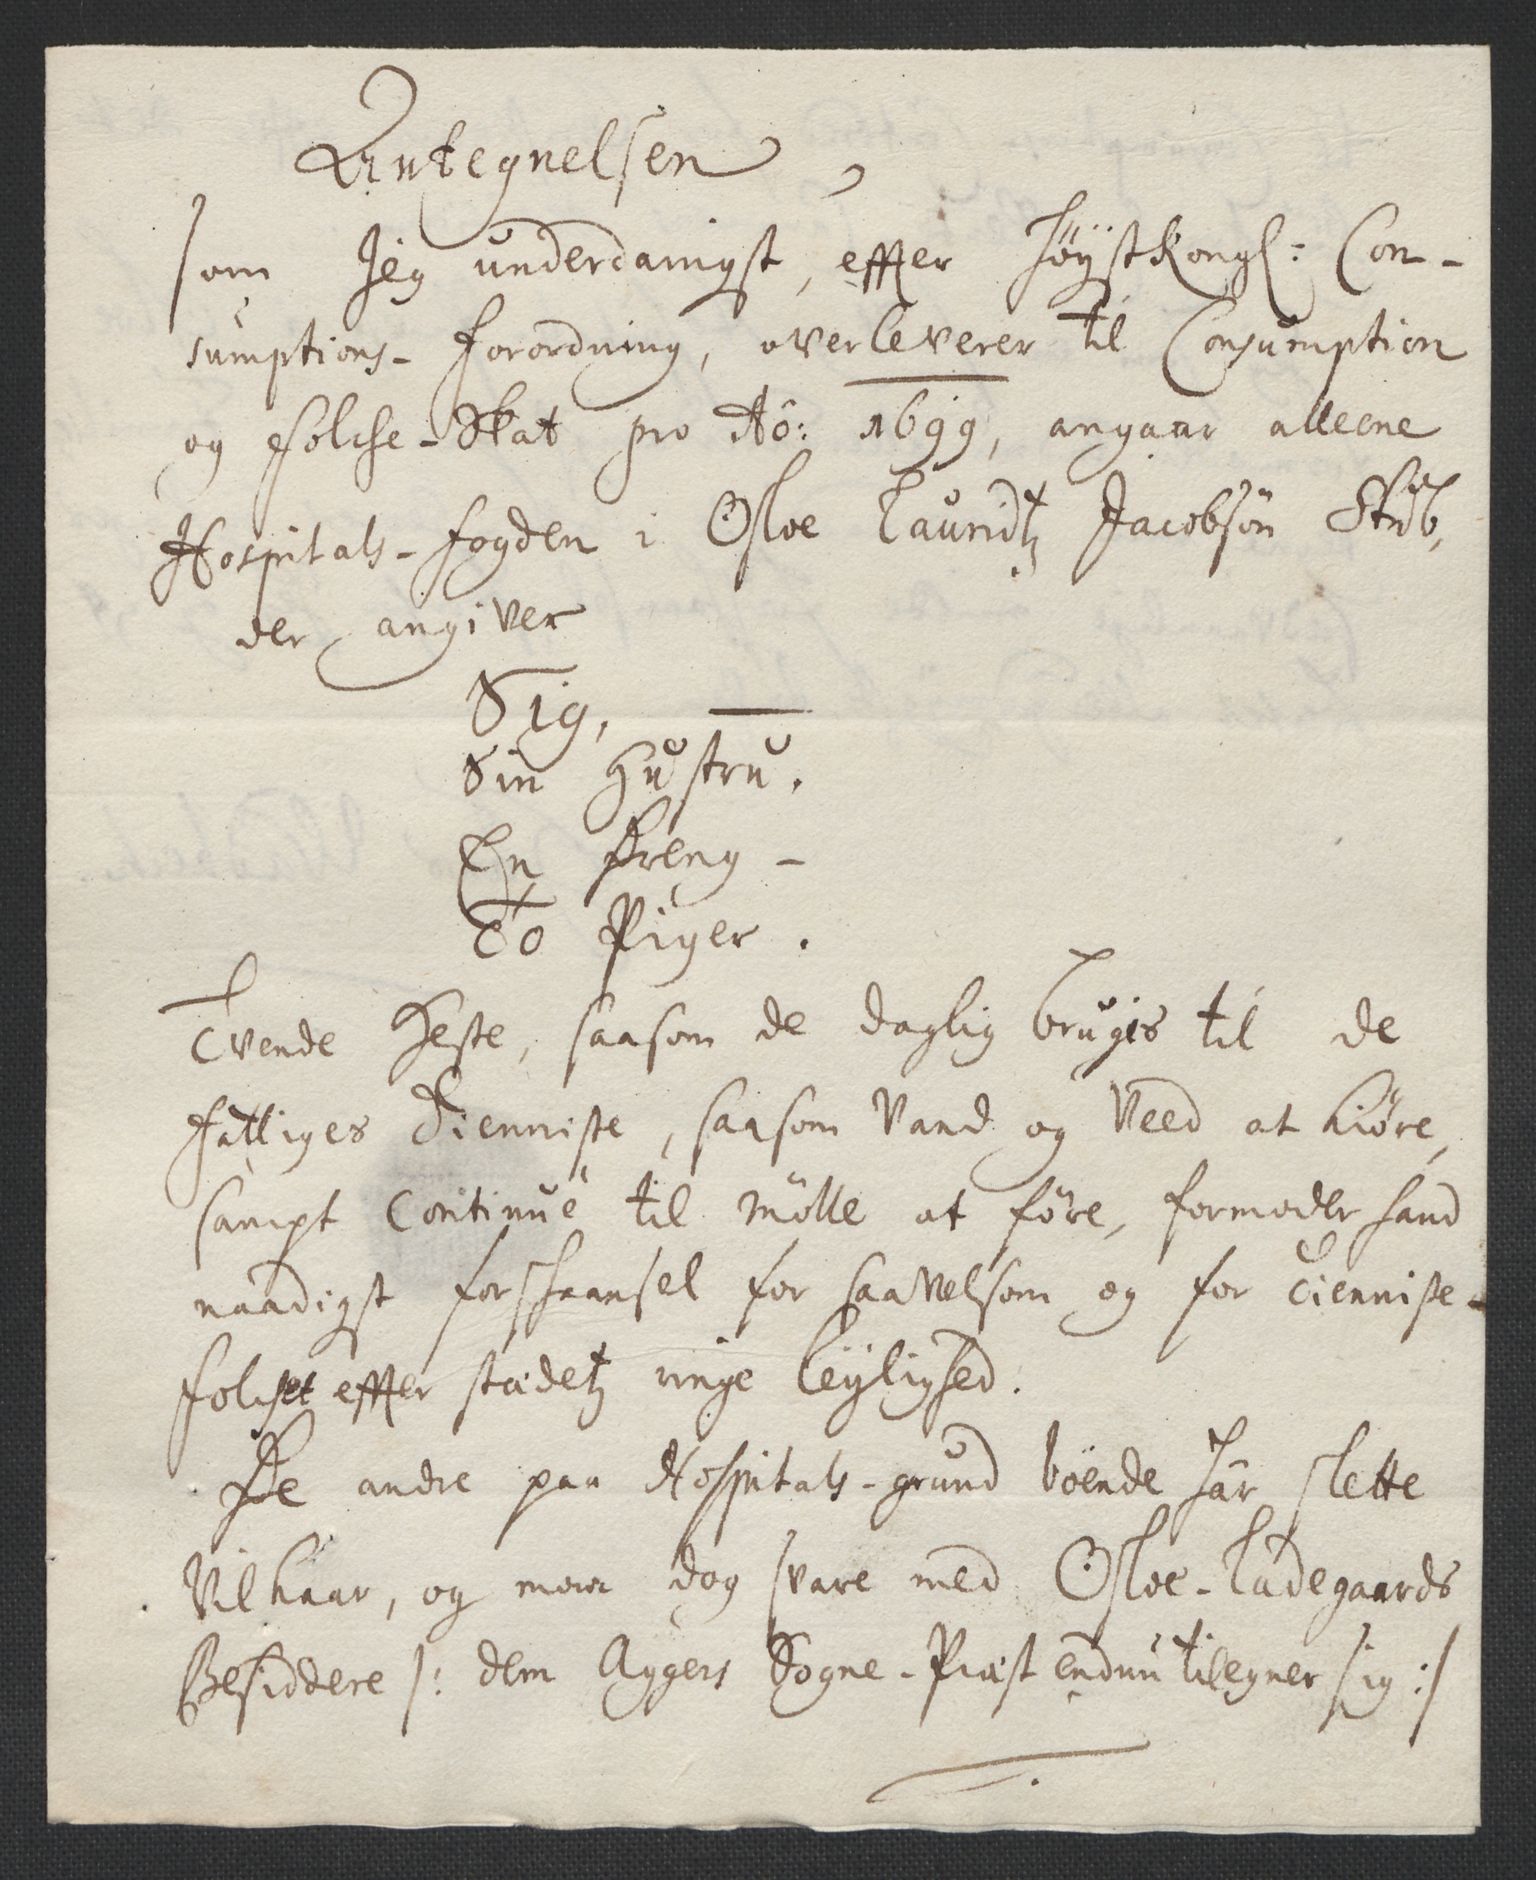 Antegnelsen
som Jeg underdanigst, effter Høÿstkongl: Con-
sumptions- forordning, overleverer til Consumption
og folche-Skat pro Aō: 1699, angaar alleene
Hospitals-fogden i Osloe Lauridtz Jacobsøn Stub,
der angiver
Sig,
Sin Hustru.
En Dreng -
To Piger.
Tvende Heste, saasom de daglig brugis til de
fattiges Tienniste, saasom Vand og Veed at kiøre,
sampt Continue til Mölle at føre, formoder hand
naadigst forskaansel for saavelsom og for Tienniste-
folchet effter stædetz ringe leÿlighed.
De andre paa Hospitals-grund boende har slette
Vilkaar, og maa dog svare med Osloe-Ladegaards
Besiddere /: dem Aggers Sogne-Præst endnu tilegner sig :/